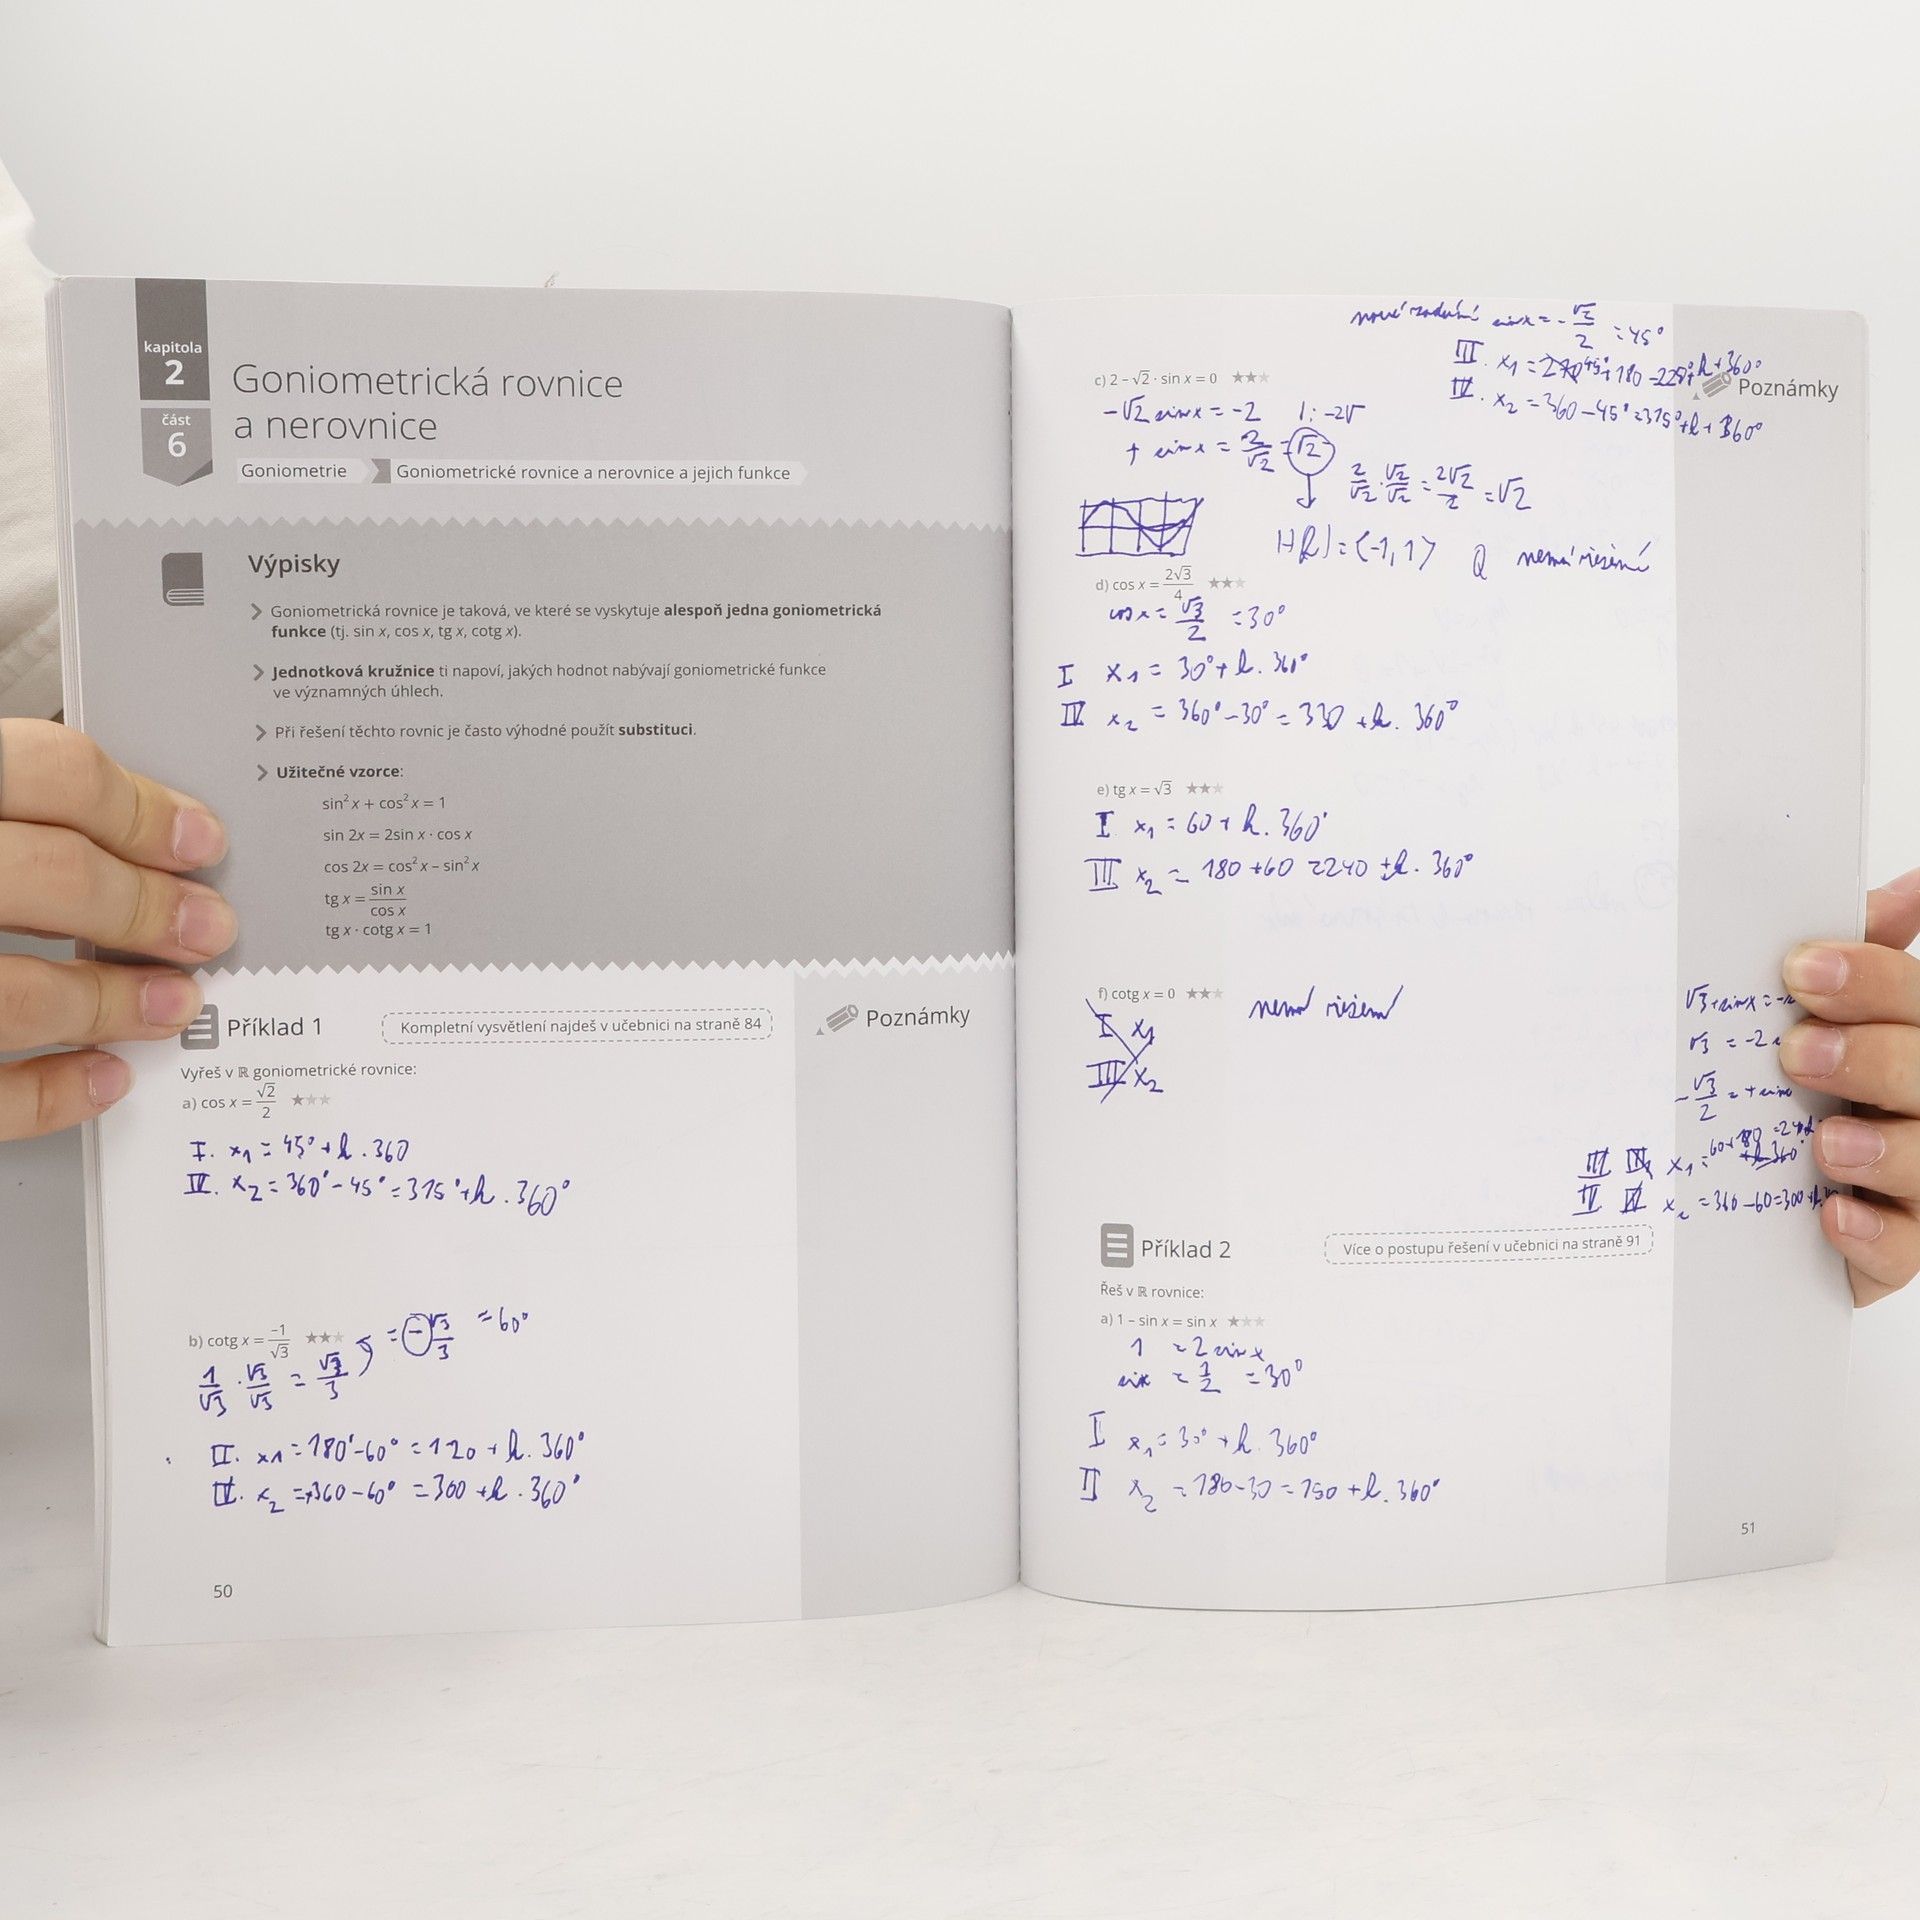 kapitola
2
část
6
Goniometrická rovnice
a nerovnice
Goniometrie
Goniometrické rovnice a nerovnice a jejich funkce
Výpisky
Goniometrická rovnice je taková, ve které se vyskytuje alespoň jedna goniometrická
funkce (tj. sin x, cos x, tg x, cotg x).
Jednotková kružnice ti napoví, jakých hodnot nabývají goniometrické funkce
ve významných úhlech.
Při řešení těchto rovnic je často výhodné použít substituci.
Užitečné vzorce:
sin²x + cos²x = 1
sin 2x = 2sin x · cos x
cos 2x = cos²x – sin²x
tg x = sin x / cos x
tg x · cotg x = 1
Příklad 1
Kompletní vysvětlení najdeš v učebnici na straně 84
Poznámky
Vyřeš v ℝ goniometrické rovnice:
a) cos x = √2/2 ★★★
I. x₁ = 45° + k . 360
IV. x₂ = 360° - 45° = 315° + k . 360°
b) cotg x = -1/√3 ★★★ = -√3/3 = 60°
1/√3 · √3/√3 = √3/3
II. x1 = 180° - 60° = 120 + k . 360°
IV. x₂ = 360 - 60° = 300 + k . 360°
50
nové zadání sin x = - √2/2 = 45°
III. x₁ = 45° + 180 = 225° + k + 360°
IV. x₂ = 360 - 45° = 315° + k + 360°
Poznámky
c) 2 – √2 · sin x = 0 ★★★
-√2 sin x = -2 /: -2√
+ sin x = 2/√2 = √2
2/√2 · √2/√2 = 2√2/2 = √2
H(f) = ⟨-1, 1⟩ Q nemá řešení
d) cos x = 2√3/4 ★★★
cos x = √3/2 = 30°
I x₁ = 30° + k . 360°
IV x₂ = 360° - 30° = 330 + k . 360°
e) tg x = √3 ★★★
I x₁ = 60 + k . 360°
III x₂ = 180 + 60 = 240 + k . 360°
f) cotg x = 0 ★★★ nemá řešení
I x₁
III x₂
√3 + sin x = -
√3 = -2
- √3/2 = + sin
III x₁ = 60 + 180 = 240
IV x₂ = 360 - 60 = 300 + k
Příklad 2
Více o postupu řešení v učebnici na straně 91
Řeš v ℝ rovnice:
a) 1 – sin x = sin x ★★★
1 = 2 sin x
sin x = 1/2 = 30°
I x₁ = 30° + k . 360°
II x₂ = 180 - 30 = 150 + k . 360°
51